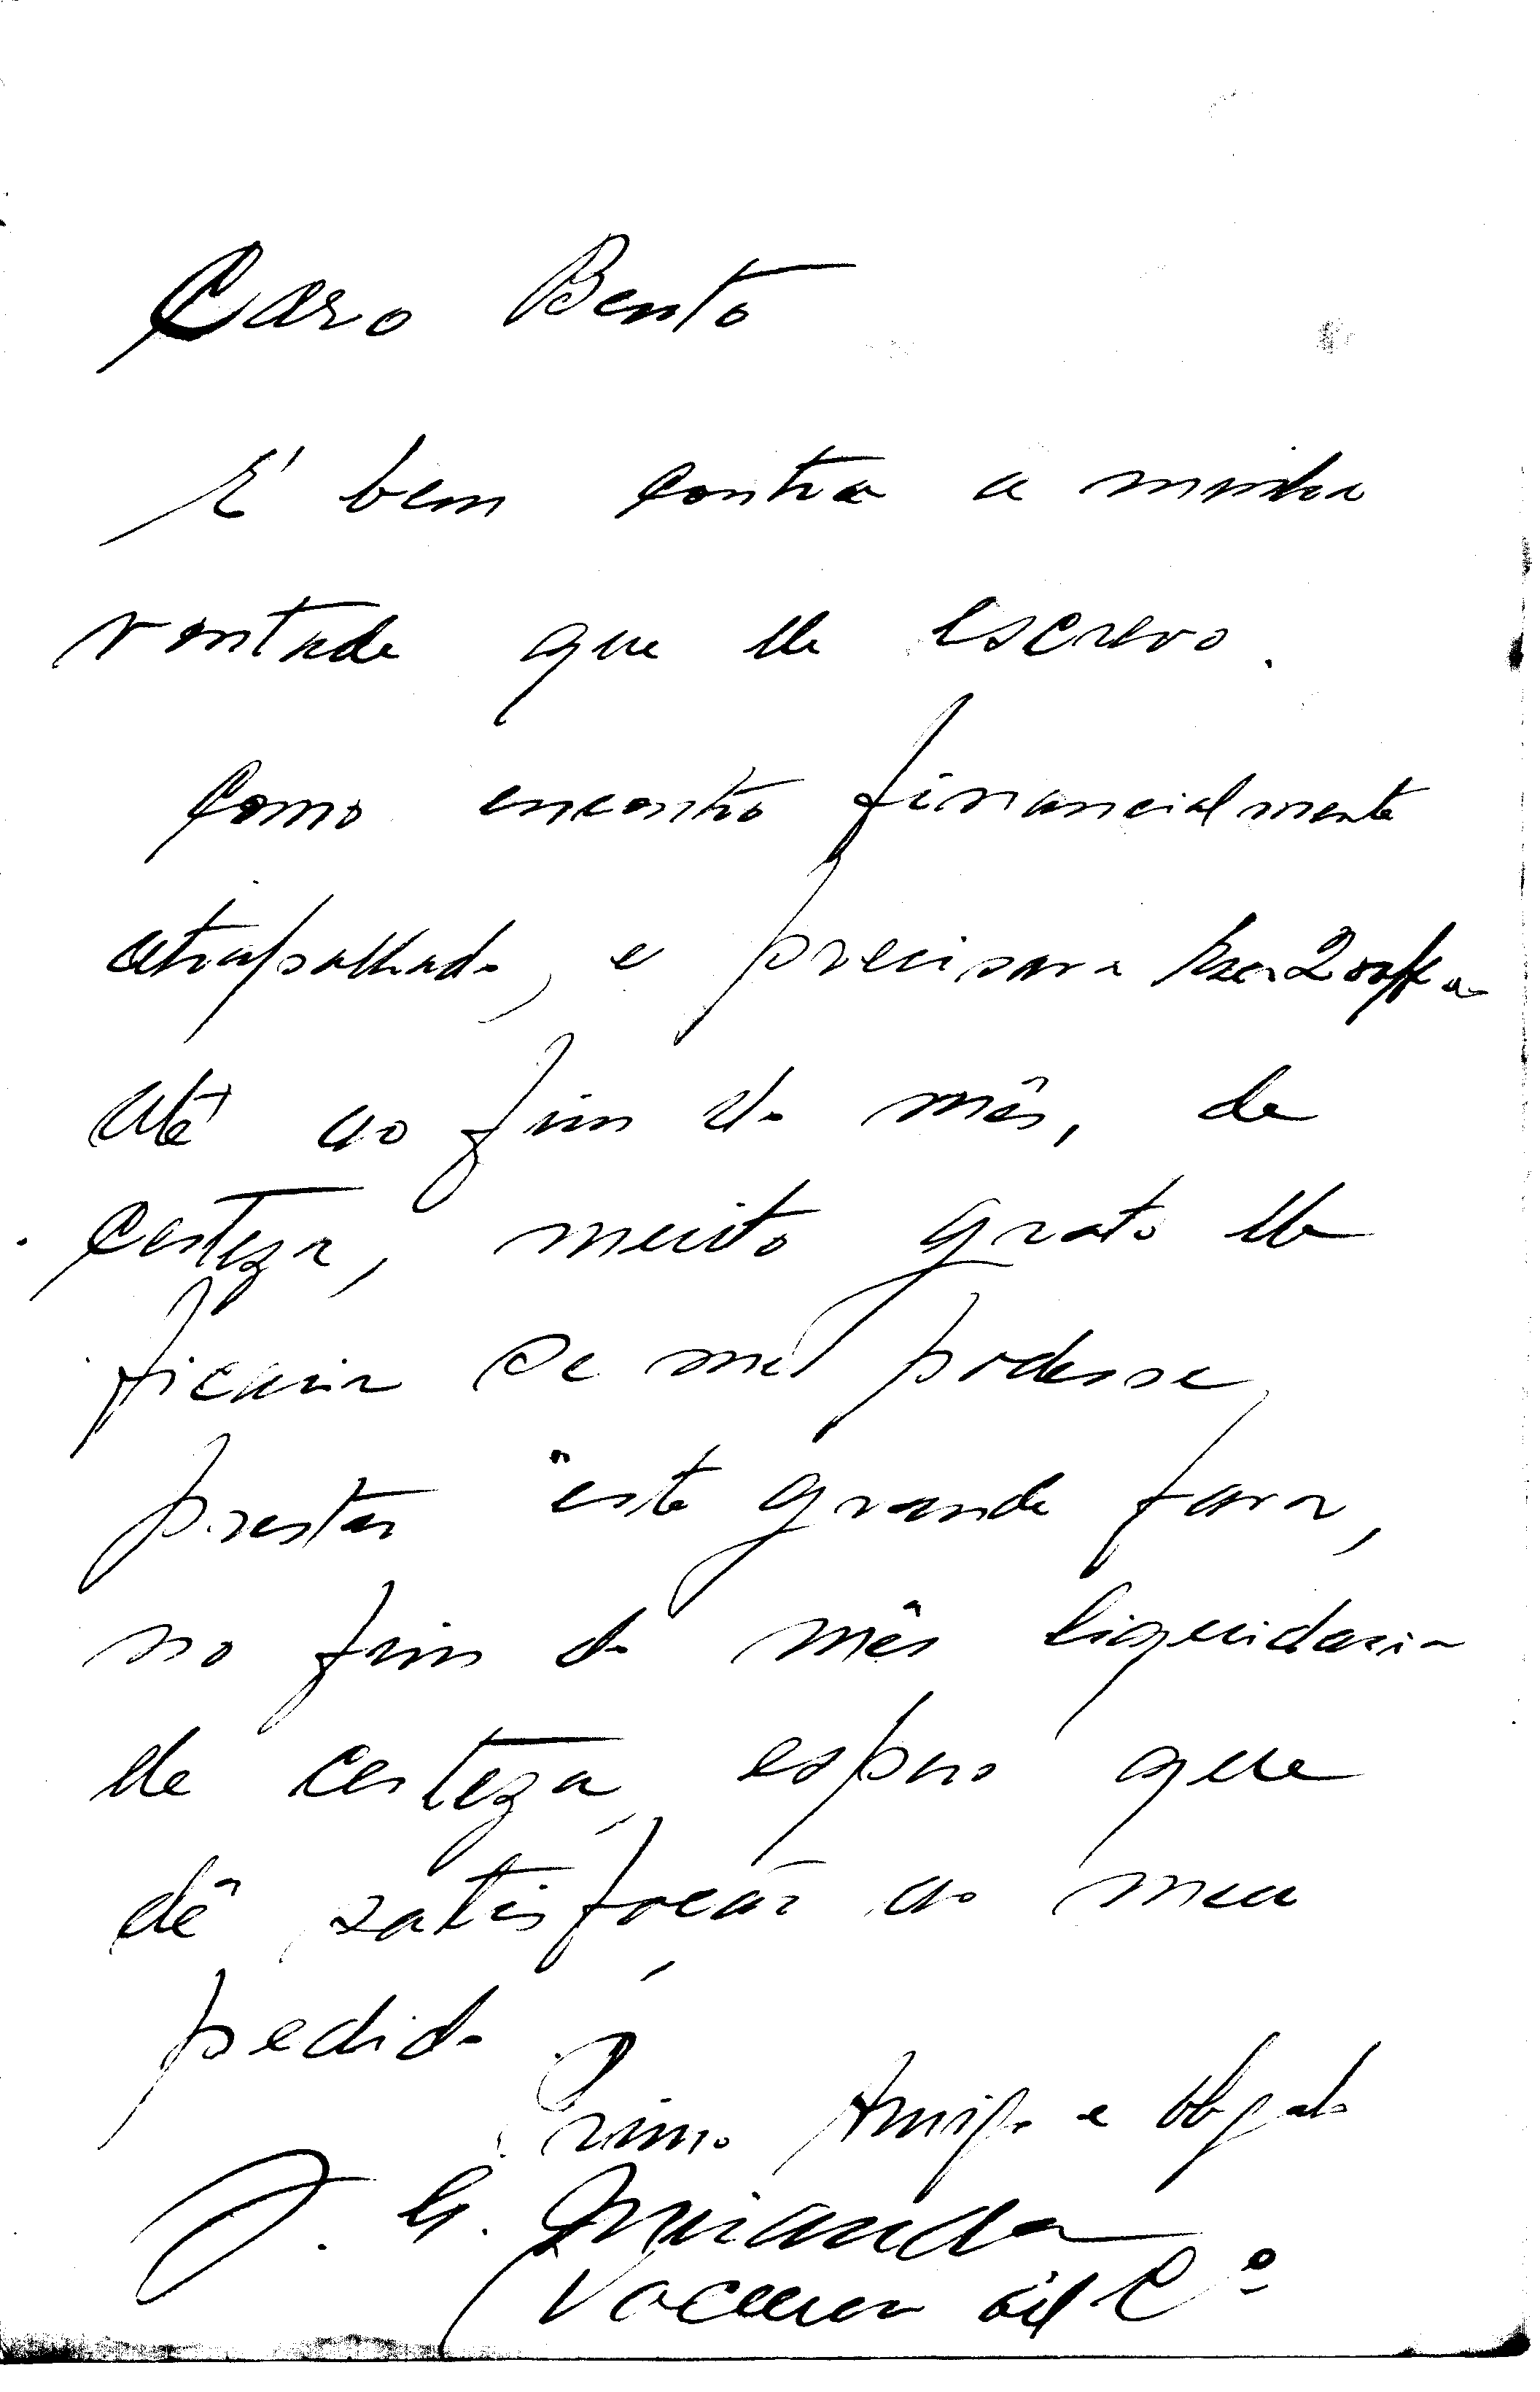 Caro Bento
E' bem contra a minha
vontade que lhe escrevo.
Como encontro financialmente
atrapalhado, e precisava
até ao fim do mês, de
certeza, muito grato lhe
ficaria se me podesse
prestar este grande favor,
no fim do mês liquidaria
de certeza, espero que
dê satisfação ao meu
pedido
Primo Amigo e Obgado
J. G. Miranda
(Vacuum Oil Cº